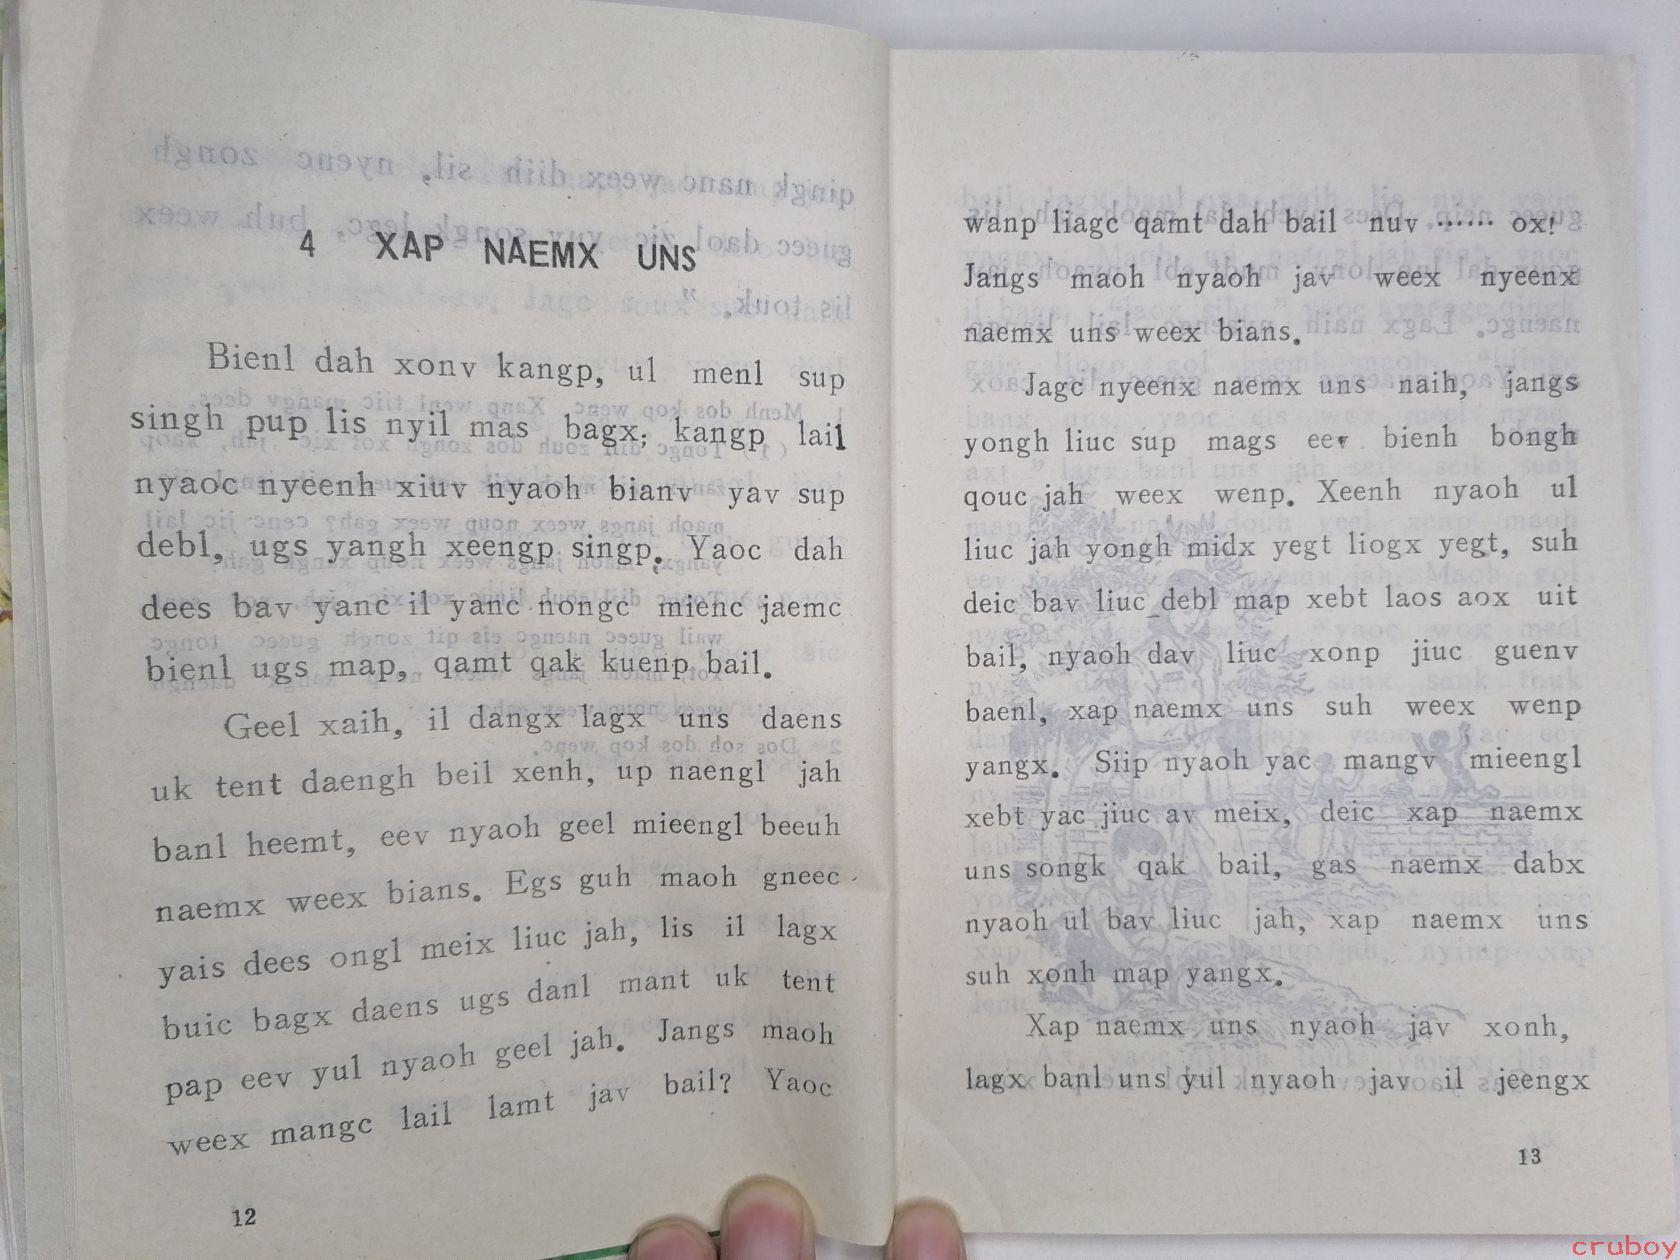 4 XAP NAEMX UNS
Bienl dah xonv kangp, ul menl sup
singh pup lis nyil mas bagx; kangp lail
nyaoc nyeenh xiuv nyaoh bianv yav sup
debl, ugs yangh xeengp singp. Yaoc dah
dees bav yanc il yanc nongc mienc jaemc
bienl ugs map, qamt qak kuenp bail.
Geel xaih, il dangx lagx uns daens
uk tent daengh beil xenh, up naengl jah
banl heemt, eev nyaoh geel mieengl beeuh
naemx weex bians. Egs guh maoh gneec
yais dees ongl meix liuc jah, lis il lagx
buic bagx daens ugs danl mant uk tent
pap eev yul nyaoh geel jah. Jangs maoh
weex mangc lail lamt jav bail? Yaoc
12
wanp liagc qamt dah bail nuv ······ ox!
Jangs maoh nyaoh jav weex nyeenx
naemx uns weex bians.
Jagc nyeenx naemx uns naih, jangs
yongh liuc sup mags eev bienh bongh
qouc jah weex wenp. Xeenh nyaoh ul
liuc jah yongh midx yegt liogx yegt, suh
deic bav liuc debl map xebt laos aox uit
bail, nyaoh dav liuc xonp jiuc guenv
baenl, xap naemx uns suh weex wenp
yangx. Siip nyaoh yac mangv mieengl
xebt yac jiuc av meix, deic xap naemx
uns songk qak bail, gas naemx dabx
nyaoh ul bav liuc jah, xap naemx uns
suh xonh map yangx.
Xap naemx uns nyaoh jav xonh,
lagx banl uns yul nyaoh jav il jeengx
13
cruboy